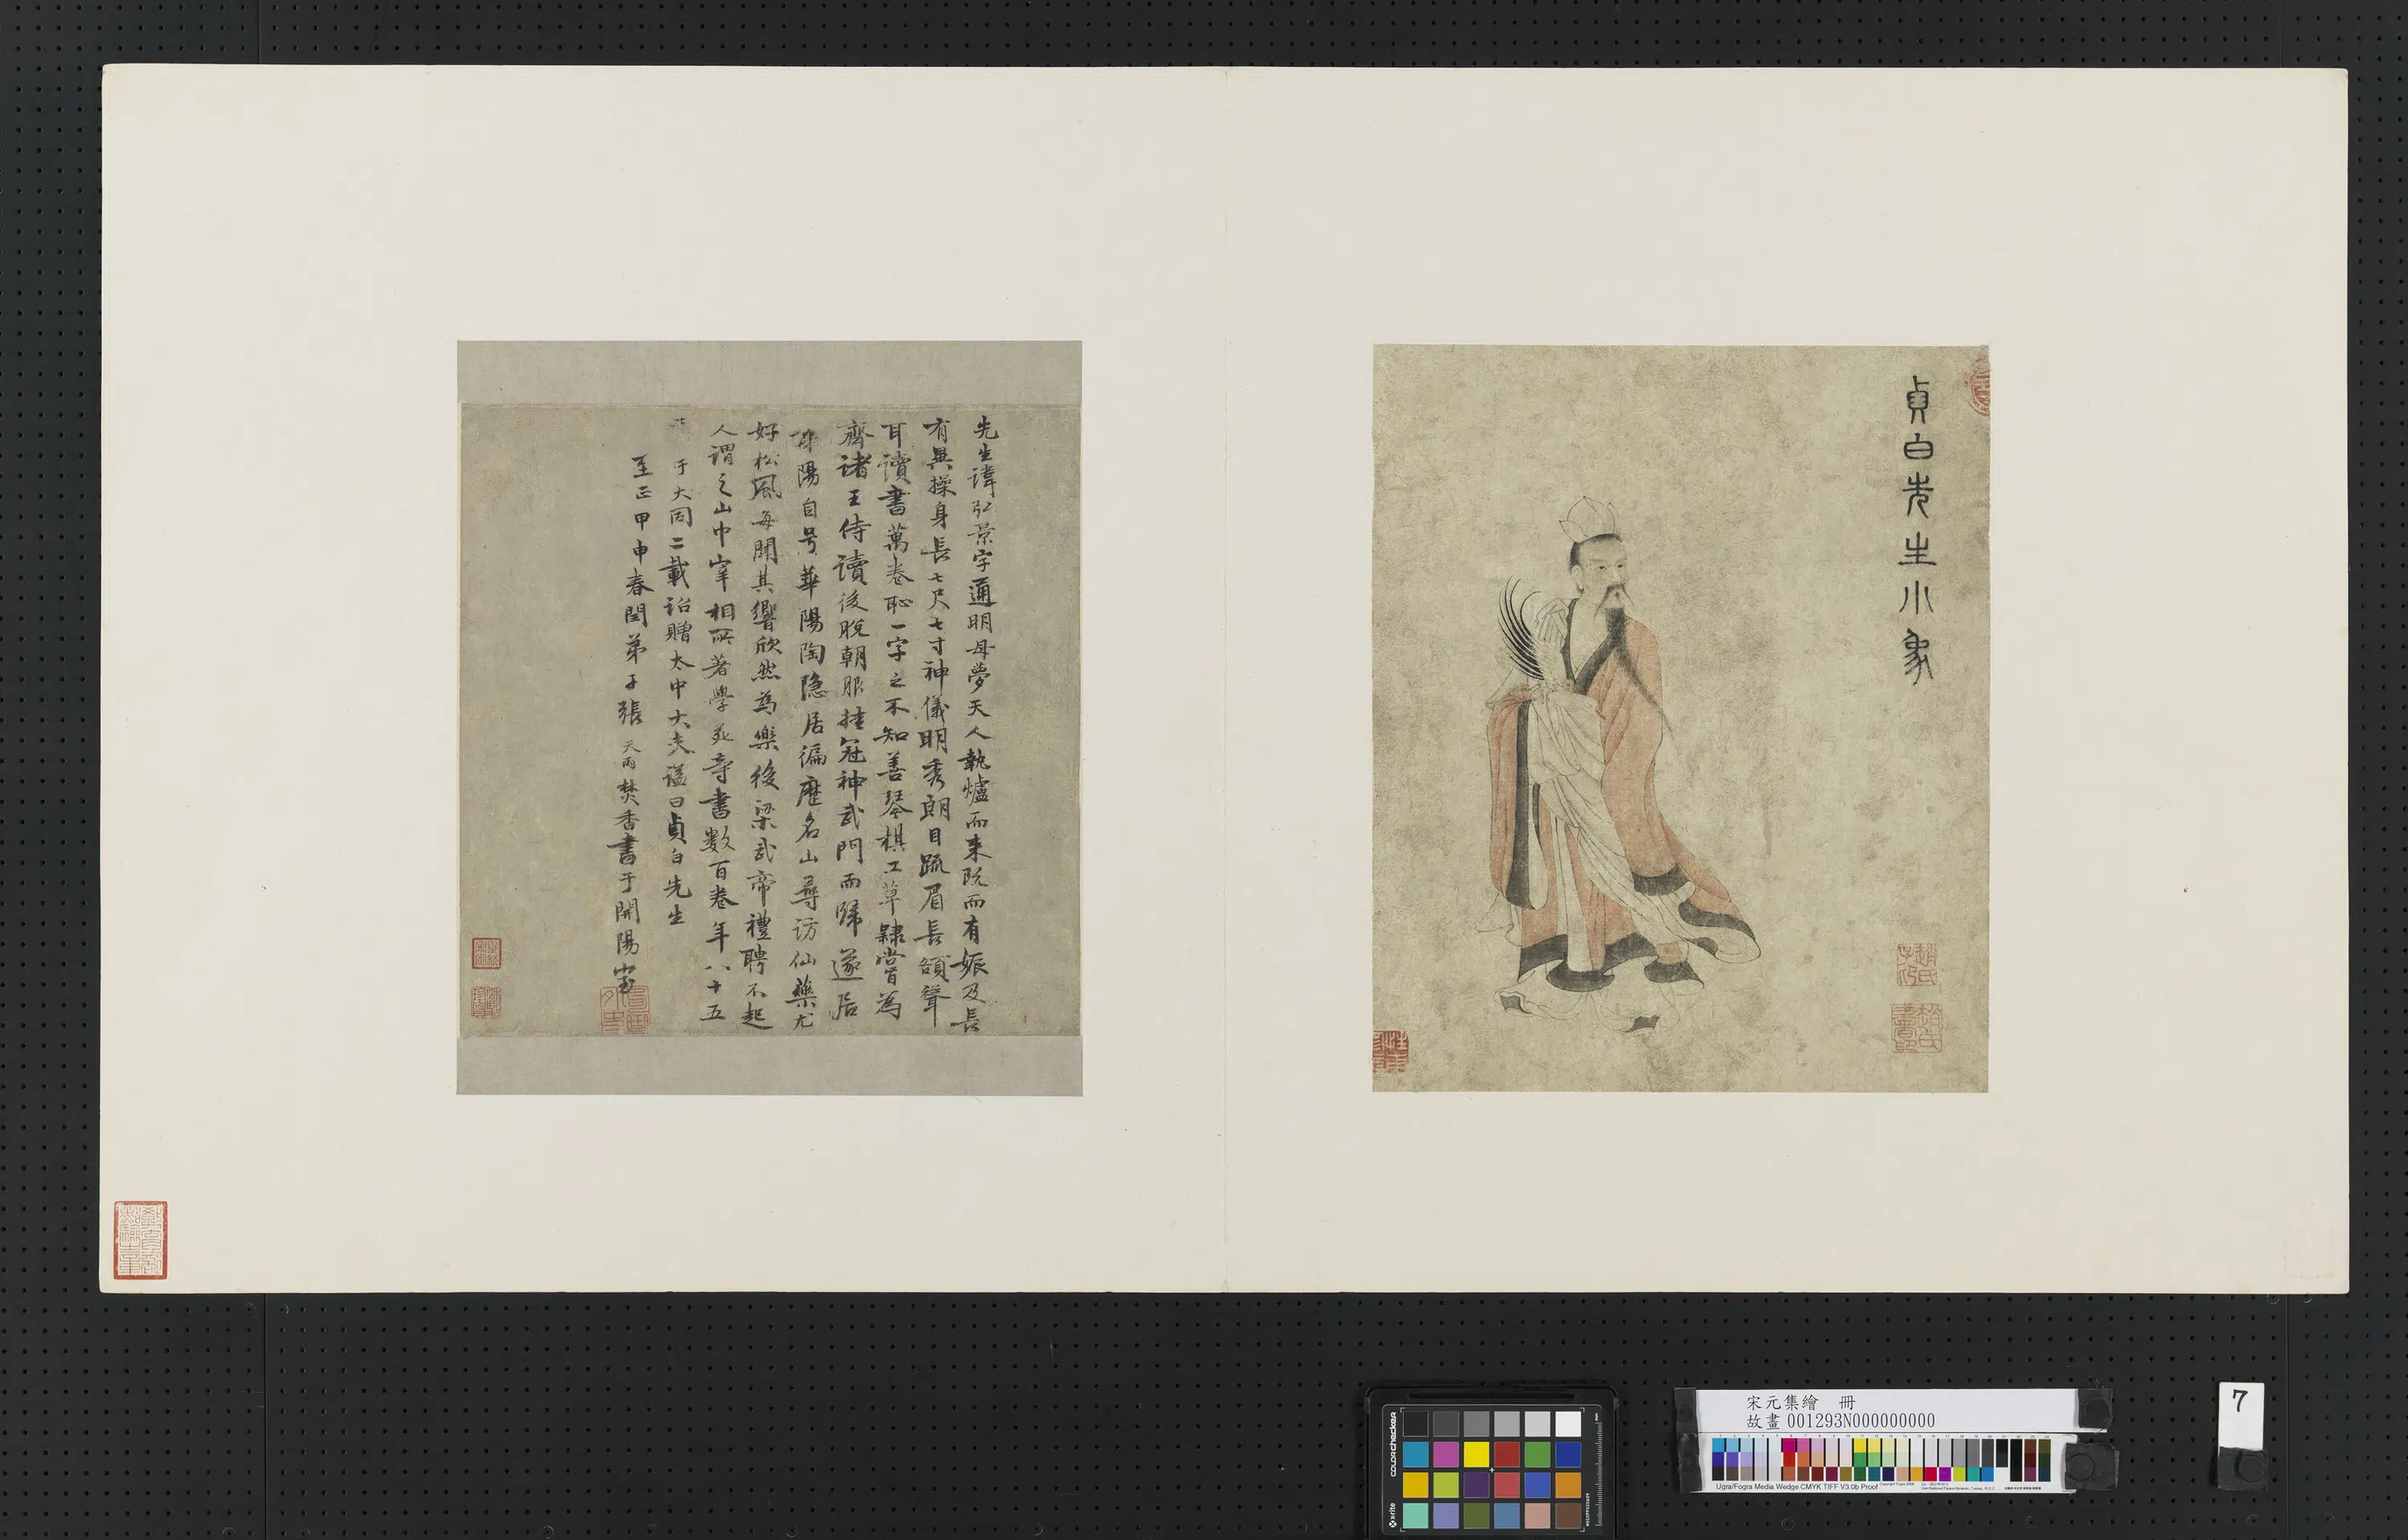 貞白先生小象
先生諱弘景字通明母夢天人執爐而来既而有娠及長
有異操身長七尺七寸神儀明秀朗目踈眉長額聳
耳讀書萬卷恥一字之不知善琴棋工草隸嘗為
齊諸王侍讀後脫朝服挂冠神武門而歸遂居
陽自号華陽陶隐居徧歷名山尋访仙藥尤
好松風每聞其響欣然為樂後梁武帝禮聘不起
人謂之山中宰相所著學苑等書數百卷年八十五
于大同二載詔贈太中大夫謚曰貞白先生
至正甲申春閏弟子張天雨焚香書于開陽室
趙氏子昂
宋元集繪 冊
故畫 001293N000000000
Ugra/Fogra Media Wedge CMYK TIFF V3.0b Proof
colorchecker
x-rite
7